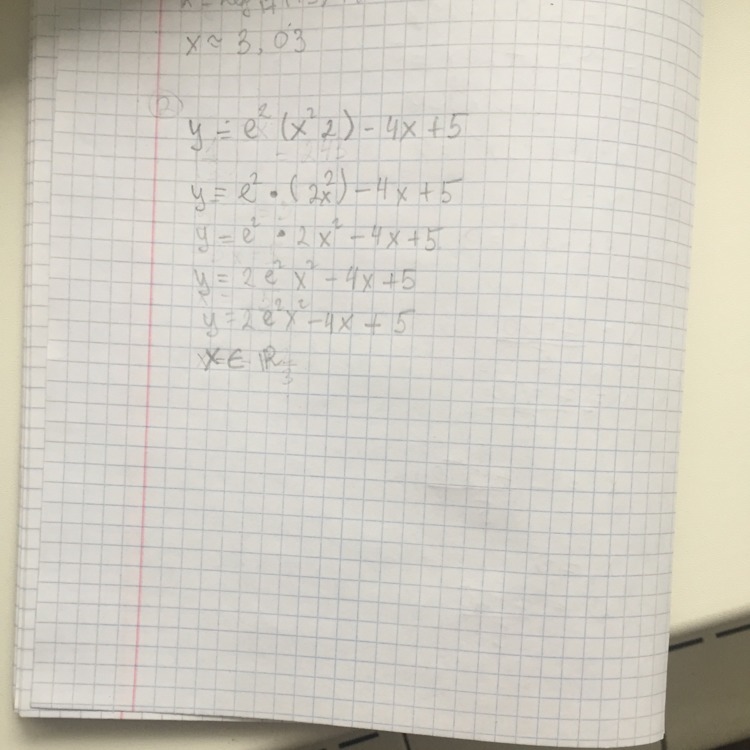 x ≈ 3,03
2
y = e² (x² 2) - 4x + 5
y = e² • (2x²) - 4x + 5
y = e² • 2x² - 4x + 5
y = 2e² x² - 4x + 5
y = 2e²x² - 4x + 5
x ∈ ℝ